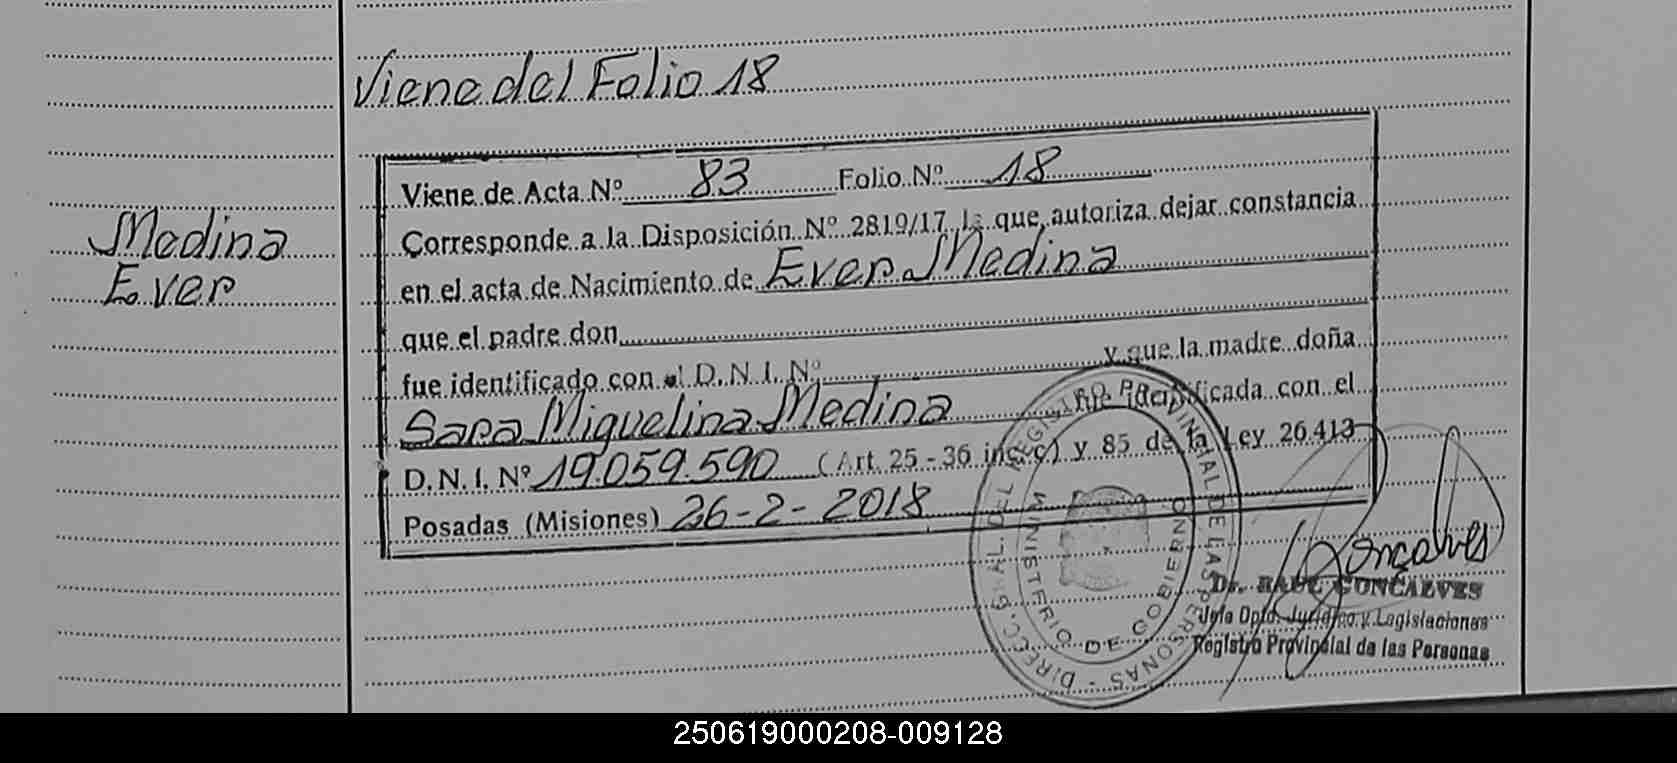 Viene del Folio 18
Viene de Acta Nº 83 Folio Nº 18
Corresponde a la Disposición Nº 2819/17 la que autoriza dejar constancia
Medina
Ever
en el acta de Nacimiento de Ever Medina
que el padre don
fue identificado con el D. N. I. Nº y que la madre doña
Sara Miguelina Medina fue identificada con el
D. N. I. Nº 19.059.590 (Art. 25 - 36 inc. c) y 85 de la Ley 26.413
Posadas (Misiones) 26-2-2018
DIRECC. GRAL. DEL REGISTRO PROVINCIAL DE LAS PERSONAS
MINISTERIO DE GOBIERNO
Gonçalves
Dr. RAUL GONCALVES
Jefe Dpto. Jurídico y Legislaciones
Registro Provincial de las Personas
250619000208-009128